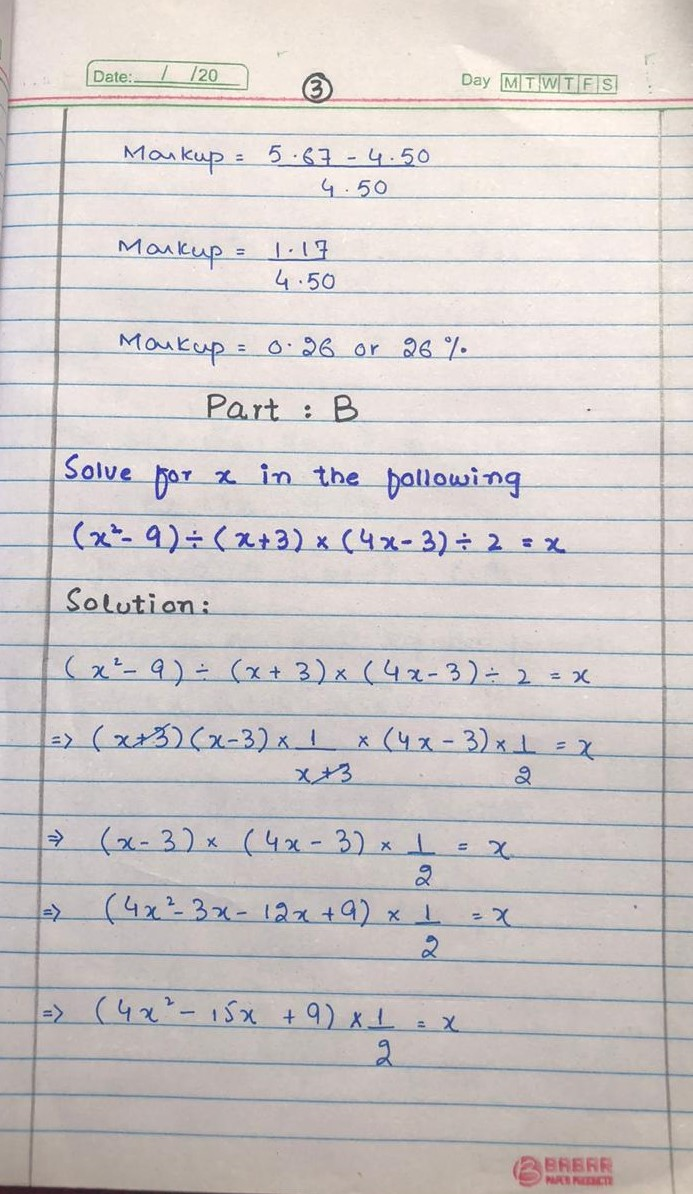 Date: / /20
3
Day M T W T F S
Markup = 5.67 - 4.50
4.50
Markup = 1.17
4.50
Markup = 0.26 or 26 %.
Part : B
Solve for x in the following
(x²- 9) ÷ (x+3) × (4x-3) ÷ 2 = x
Solution:
(x²- 9) ÷ (x + 3) × (4x-3) ÷ 2 = x
=> (x+3)(x-3) × 1 × (4x - 3) × 1 = x
x+3 2
=> (x- 3) × (4x - 3) × 1 = x
2
=> (4x²- 3x - 12x + 9) × 1 = x
2
=> (4x² - 15x + 9) × 1 = x
2
BABAR
PAPER PRODUCTS